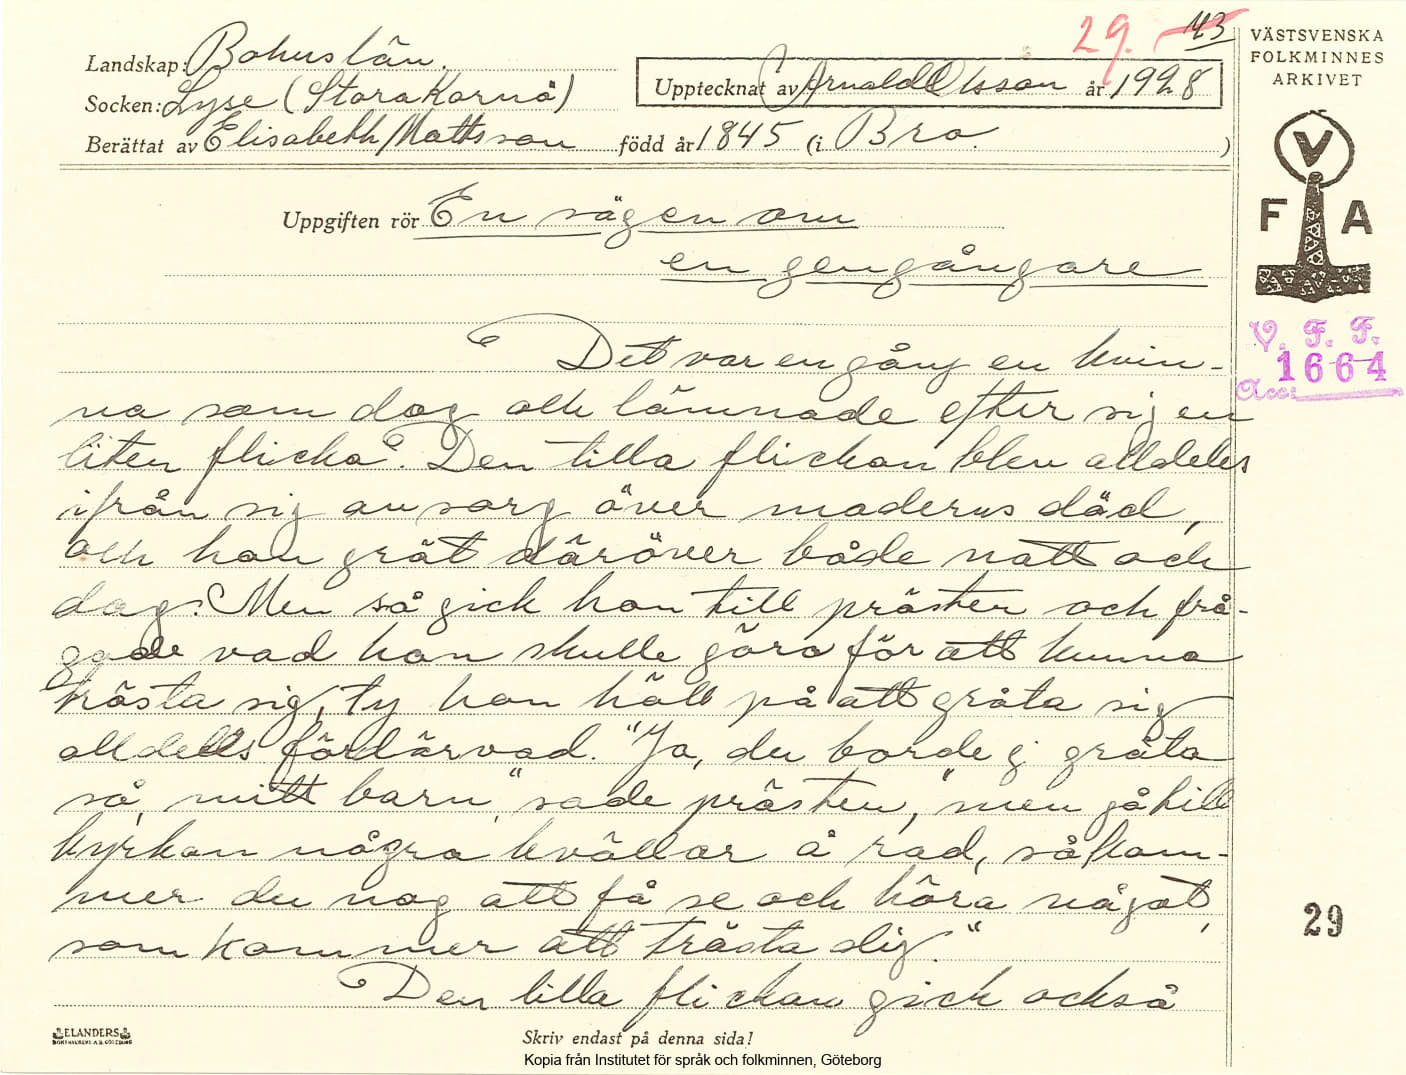 29. 43
VÄSTSVENSKA
FOLKMINNES
ARKIVET
Landskap: Bohuslän.
Socken: Lyse (Stora Kornö)
Berättat av Elisabeth Mattsson född år 1845 (i Bro. )
Upptecknat av Arnold Olsson år 1928
Uppgiften rör En sägen om
en gengångare
V
F A
V. F. F.
1664
Acc:
Det var en gång en kvin-
na som dog och lämnade efter sig en
liten flicka. Den lilla flickan blev alldeles
ifrån sig av sorg över moderns död,
och hon grät däröver både natt och
dag. Men så gick hon till prästen och frå-
gade vad hon skulle göra för att kunna
trösta sig, ty hon höll på att gråta sig
alldeles fördärvad. "Ja, du borde ej gråta
så, mitt barn", sade prästen, "men gå till
kyrkan några kvällar å rad, så kom-
mer du nog att få se och höra något,
som kommer att trösta dig."
Den lilla flickan gick också
29
ELANDERS
BOKTRYCKERI A.B. GÖTEBORG
Skriv endast på denna sida!
Kopia från Institutet för språk och folkminnen, Göteborg